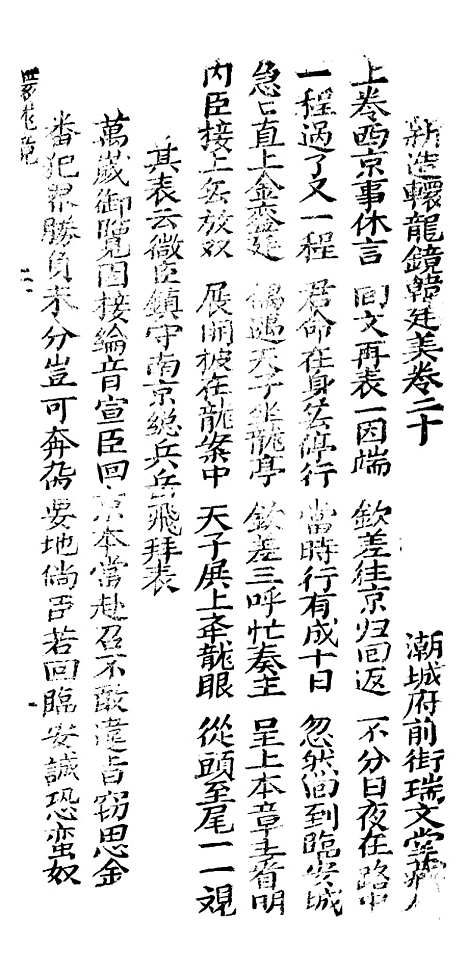 新造轅龍鏡韓廷美卷二十 潮城府前街瑞文堂藏
上卷西京事休言 回文再表一因端 欽差往京归回返 不分日夜在路中
一程过了又一程 君命在身無停行 當時行有成十日 忽然回到臨安城
急亡直上金鑾廷 楊遇天子坐龍亭 欽差三呼忙奏主 呈上本章主省明
内臣接上無放双 展開披在龍案中 天子展上牽龍眼 從頭至尾一一覌
其表云微臣鎮守南京總兵岳飛拜表
萬歲御覽因接綸音宣臣回京本當赴召不敢違旨窃思金
番犯界勝負未分豈可奔舍要地倘臣若回臨安誠恐蛮奴